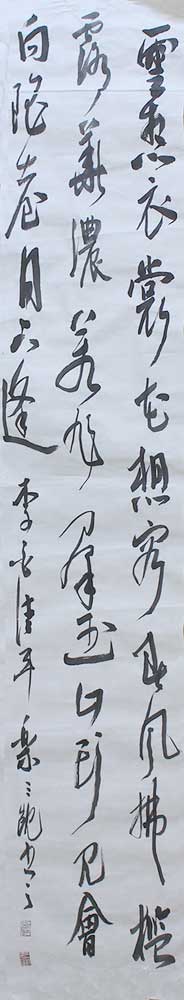 雲想衣裳花想容春風拂檻
露華濃若非羣玉山頭見會
向瑶臺月下逢 李白清平樂